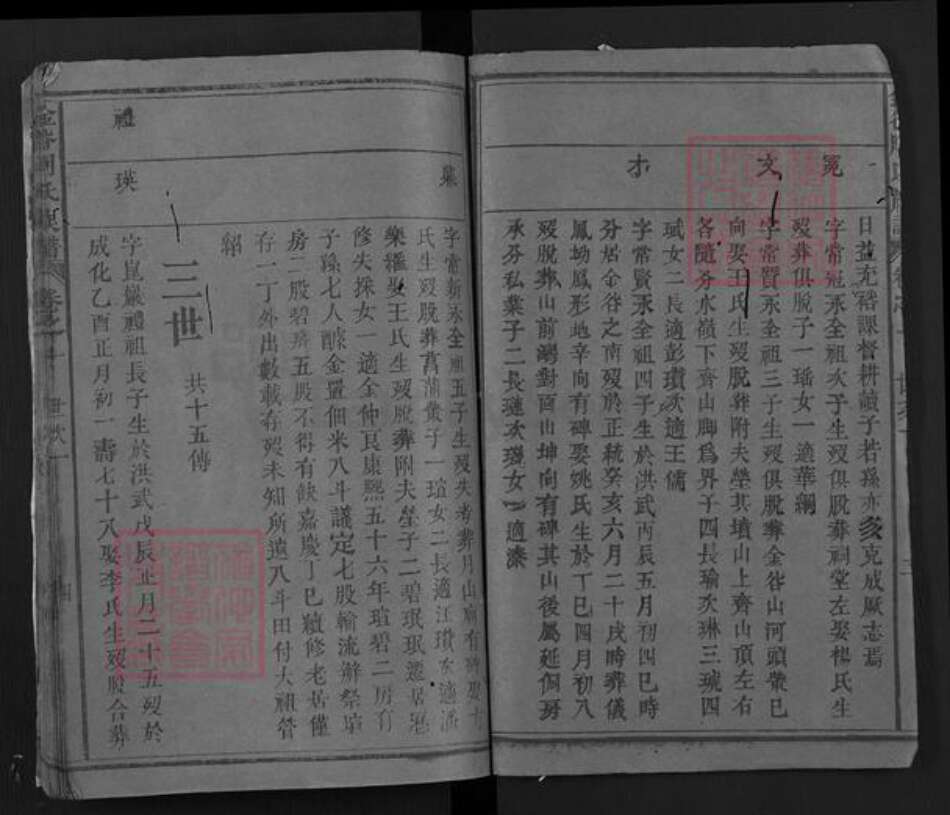 日益充裕課督耕讀子若孫亦亥克成厥志焉
冕
字常冠永全祖次子生歿俱脫葬祠堂左娶楊氏生
歿葬俱脫子一瑶女一適華綱
文
字常賢永全祖三子生歿俱脫葬金谷山河頭崇巳
向娶王氏生歿脫葬附夫塋其墳山上齊山頂左右
各隨分水嶺下齊山脚爲界子四長瑜次琳三琬四
珷女二長適彭瓚次適王儒
才
字常賢永全祖四子生於洪武丙辰五月初四巳時
分居金谷之南歿於正統癸亥六月二十戌時葬儀
鳳坳鳳形地辛向有碑娶姚氏生於丁巳四月初八
歿脫葬山前灣對面山坤向有碑其山後屬延侗房
承分私業子二長璉次璦女一適漆
集
字常新永全祖五子生歿失考葬月山廟有碑娶
氏生歿脫葬菖蒲黄子一瑄女二長適江瓚次適
樂禮娶王氏生歿脫葬附夫塋子二碧珉珉遷居
修失採女一適金仲良康熙五十六年瑄碧二房有
子孫七人醵金置佃米八斗議定七股輪流辦祭瑄
房二股碧房五股不得有缺嘉慶丁巳續修老居僅
存一丁外出數載存歿未知所遺八斗田付大祖管
紹
三世 共十五傳
禮 瑛
字崑嚴禮祖長子生於洪武戊辰正月二十五歿於
成化乙酉正月初一壽七十八娶李氏生歿脫合葬